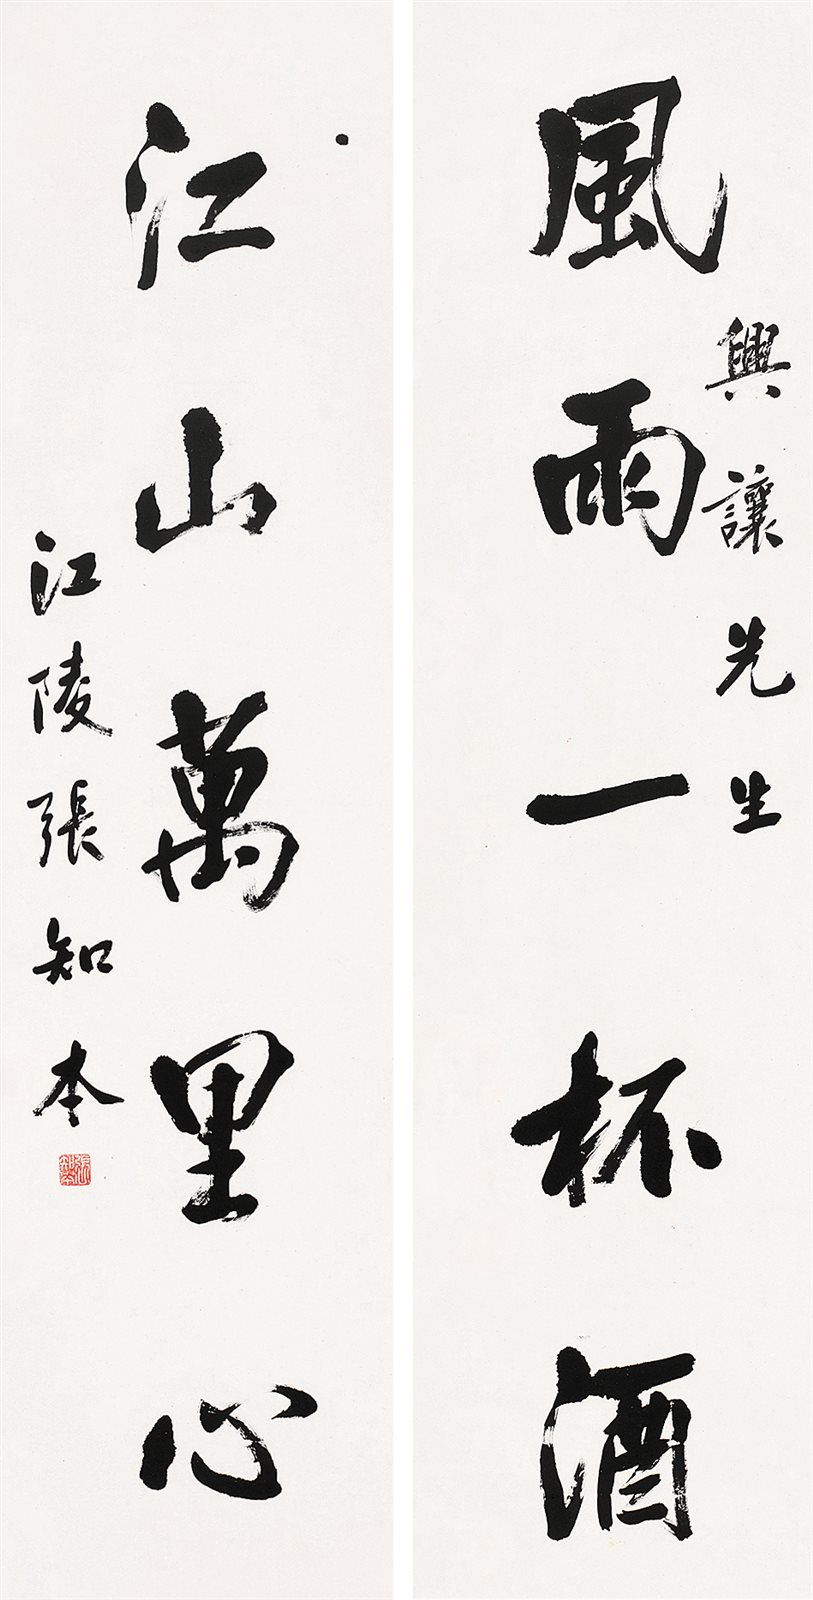 風雨一杯酒
興讓先生
江山萬里心
江陵張知本
張知本